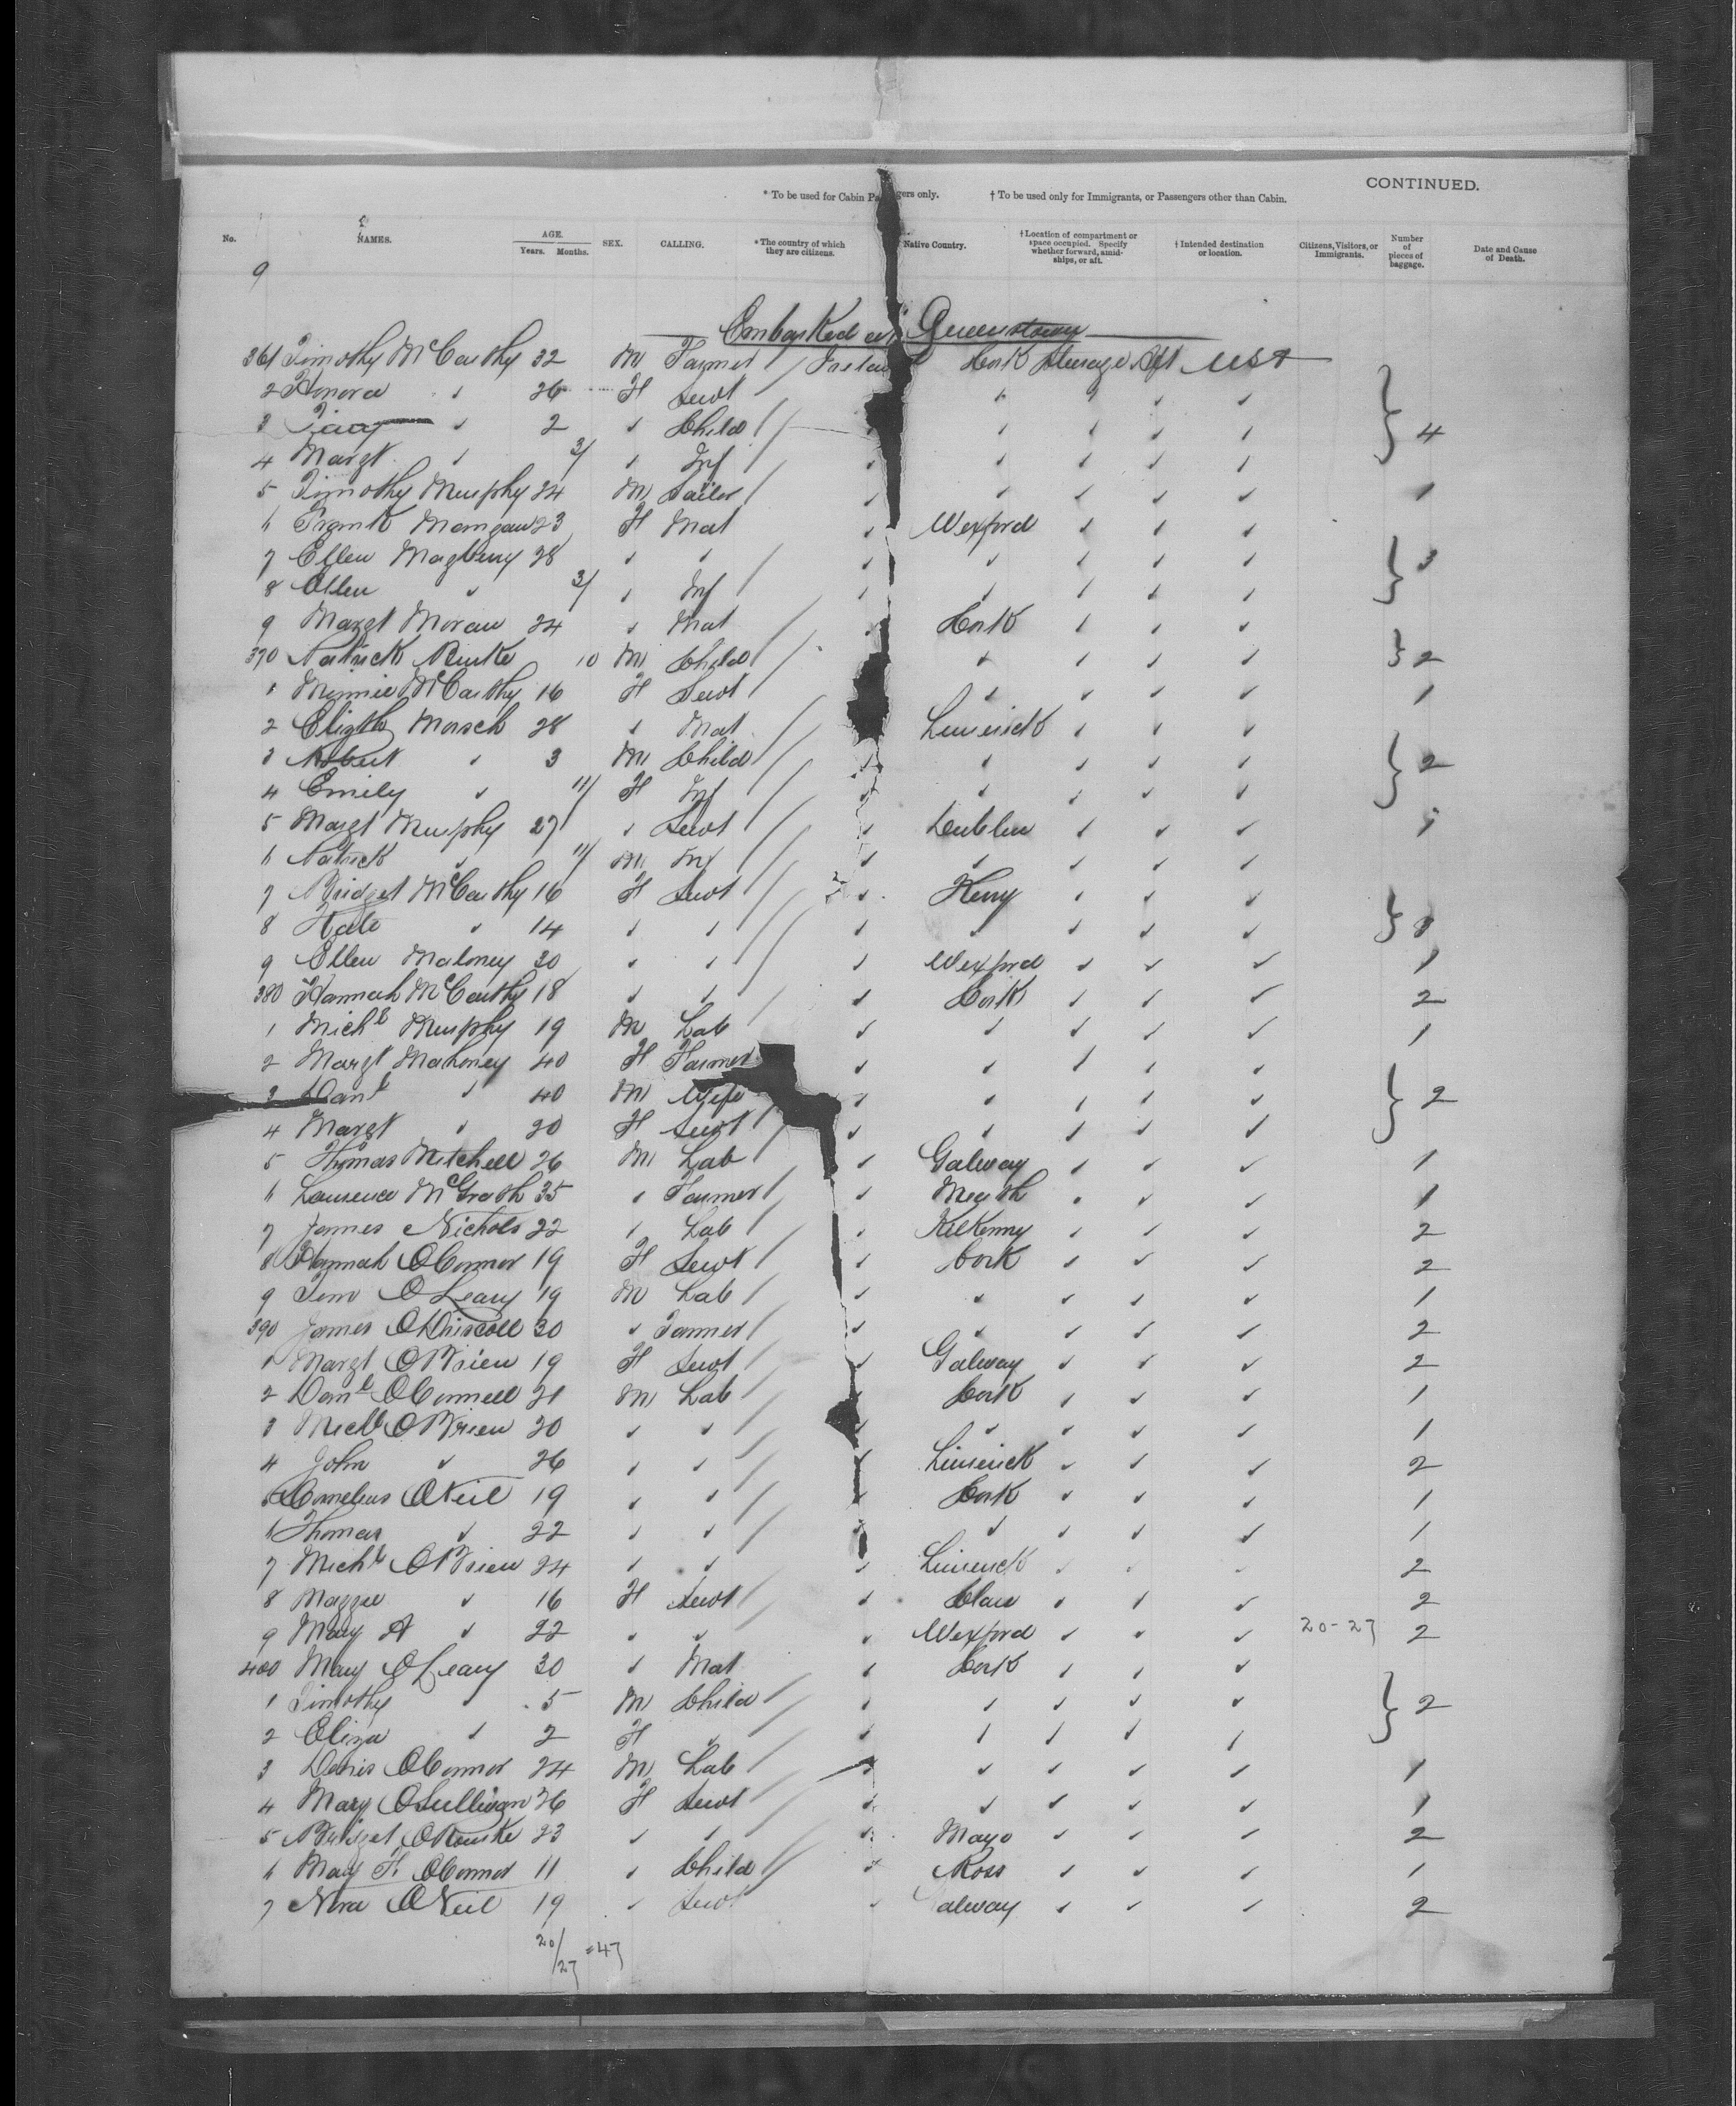 CONTINUED.
* To be used for Cabin Pa gers only. † To be used only for Immigrants, or Passengers other than Cabin.
No. NAMES. AGE. Years. Months. SEX. CALLING. * The country of which they are citizens. Native Country. † Location of compartment or space occupied. Specify whether forward, amid-ships, or aft. † Intended destination or location. Citizens, Visitors, or Immigrants. Number of pieces of baggage. Date and Cause of Death.
9
Embarked at Queenstown
361 Timothy McCarthy 32 M Farmer / Irelan Cork Steerage Aft USA
2 Honora " 26 F Servt / " " " "
3 " 2 " Child // " " " " } 4
4 Margt " 3/ " Inf / " " " " "
5 Timothy Murphy 24 M Sailor / " " " " " 1
6 Frank 23 F Mat " Wexford " " "
7 Ellen 28 " " / " " " " " } 3
8 Ellen " 3/ " Inf / " " " " "
9 Margt Moran 24 " Mat / " Cork " " "
370 Patrick Burke 10 M Child / " " " " } 2
1 Minnie McCarthy 16 F Servt / " " " " 1
2 Elizth 28 " Mat / Limerick " " "
3 Albert " 3 M Child // " " " " " } 2
4 Emily " 11/ F Inf // " " " " "
5 Margt Murphy 27 " Servt // " Dublin " " " 1
6 Patrick " 11/ M Inf // " " " " "
7 Bridget McCarthy 16 F Servt // " Kerry " " "
8 Kate " 14 " " // " " " " " } 3
9 Ellen Maloney 20 " " // " Wexford " " " 1
380 Hannah McCarthy 18 " " / " Cork " " " 2
1 Michl Murphy 19 M Lab / " " " " " 1
2 Margt Mahoney 40 F Farmer " " " " "
3 Danl " 40 M Wife " " " " " } 2
4 Margt " 20 F Servt / " " " " "
5 Thomas Mitchell 26 M Lab / " Galway " " " 1
6 Laurence McGrath 35 " Farmer / " Meath " " " 1
7 James Nichols 22 " Lab / " Kilkenny " " " 2
8 Hannah OConnor 19 F Servt / " Cork " " " 2
9 Tim OLeary 19 M Lab / " " " " " 1
390 James ODriscoll 30 " Farmer / " " " " " 2
1 Margt OBrien 19 F Servt / " Galway " " " 2
2 Danl OConnell 21 M Lab / Cork " " " 1
3 Michl OBrien 20 " " / " " " " " 1
4 John " 26 " " / " Limerick " " " 2
5 Cornelius ONeil 19 " " / " Cork " " " 1
6 Thomas " 22 " " / " " " " " 1
7 Michl OBrien 24 " " / " Limerick " " " 2
8 Maggie " 16 F Servt / " Clare " " " 2
9 Mary A " 22 " " / " Wexford " " " 20-27 2
400 Mary OLeary 30 " Mat / " Cork " " "
1 Timothy " 5 M Child / " " " " " } 2
2 Eliza " 2 F " / " " " " "
3 Denis OConnor 24 M Lab / " " " " " 1
4 Mary OSullivan 26 F Servt / " " " " " 1
5 Bridget ORourke 23 " " / " Mayo " " " 2
6 Mary F. OConnor 11 " Child // " Ross " " " 1
7 Nora ONeil 19 " Servt " Galway " " " 2
20/27 = 47